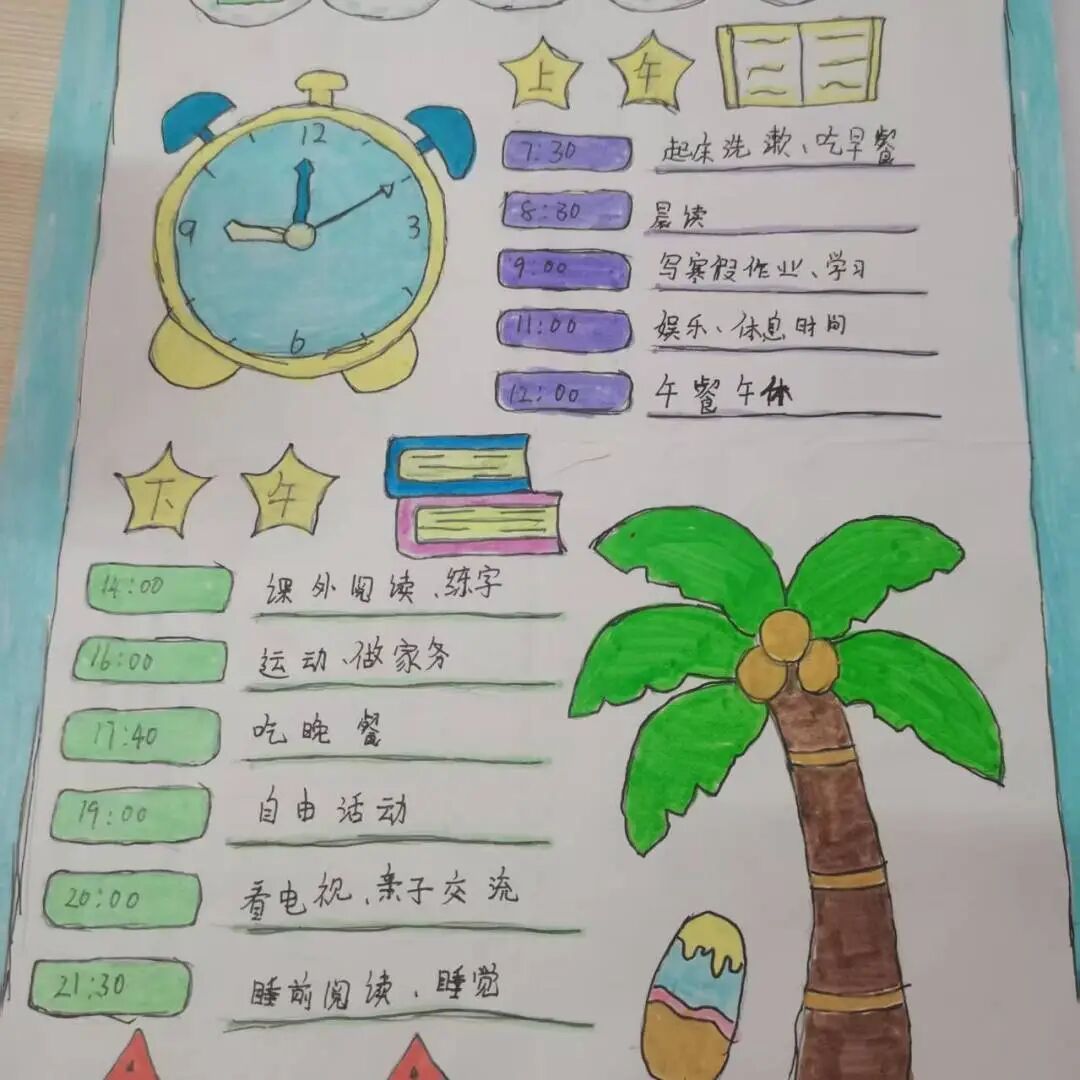 上午
7:30 起床洗漱、吃早餐
8:30 晨读
9:00 写寒假作业、学习
11:00 娱乐、休息时间
12:00 午餐午休
12
9 3
6
下午
14:00 课外阅读、练字
16:00 运动、做家务
17:40 吃晚餐
19:00 自由活动
20:00 看电视、亲子交流
21:30 睡前阅读、睡觉